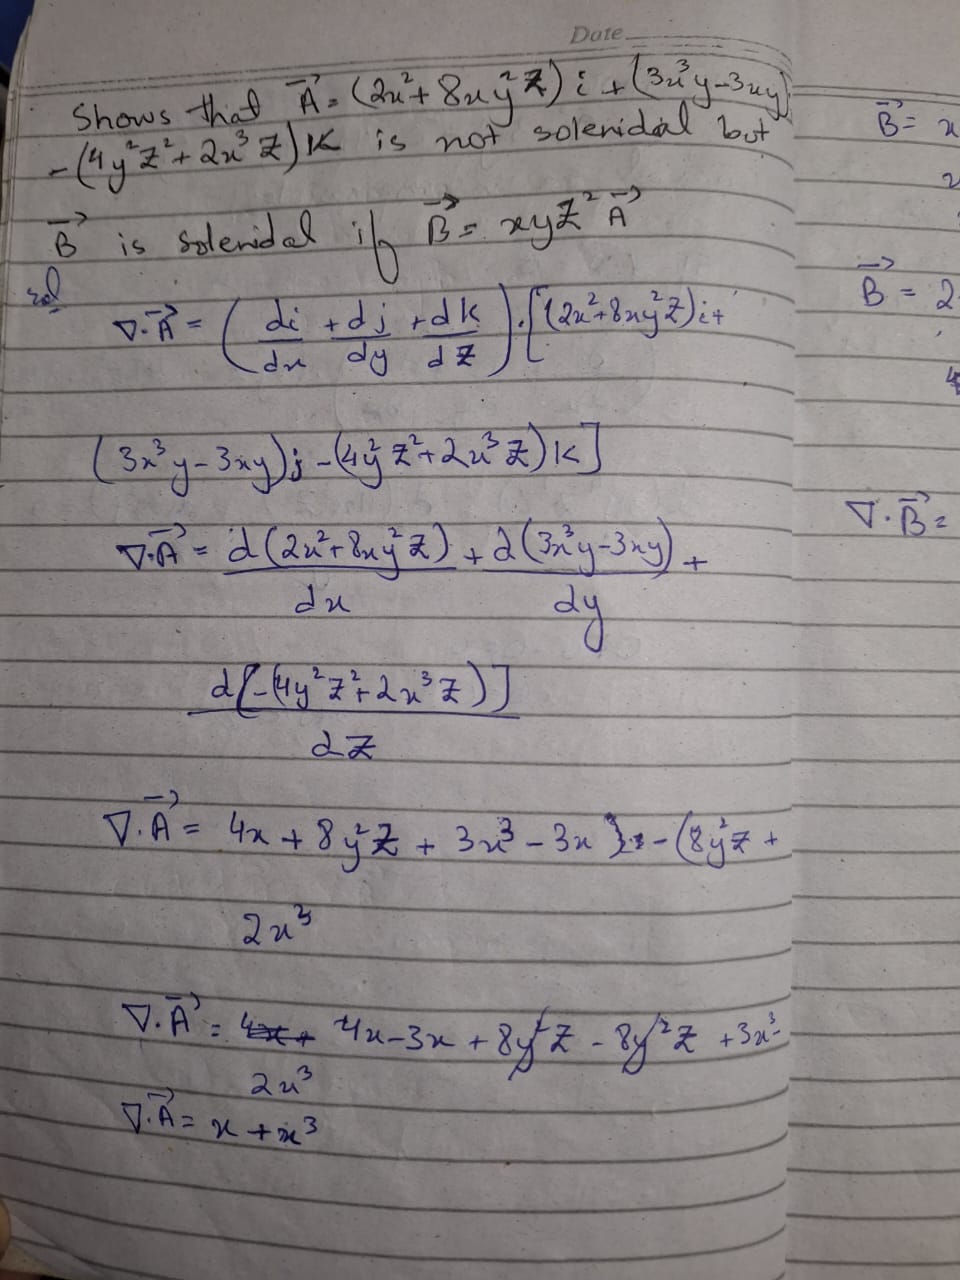 Date
Shows that A⃗ = (2x²+ 8xy²z) i + (3x³y-3xy)
-(4y²z²+2x³z)k is not solenidal but
B⃗ is solenidal if B⃗ = xyz² A⃗
sol
∇.A⃗ = (di/dx + dj/dy + dk/dz).[(2x²+8xy²z)i+
(3x³y-3xy)j-(4y²z²+2x³z)k]
∇.A⃗ = d(2x²+8xy²z)/dx + d(3x³y-3xy)/dy +
d[-(4y²z²+2x³z)]/dz
∇.A⃗ = 4x + 8y²z + 3x³ - 3x -(8y²z +
2x³
∇.A⃗ = 4x-3x + 8y²z - 8y²z + 3x³-
2x³
∇.A⃗ = x + x³
B⃗ = x
B⃗ = 2
∇.B⃗ =